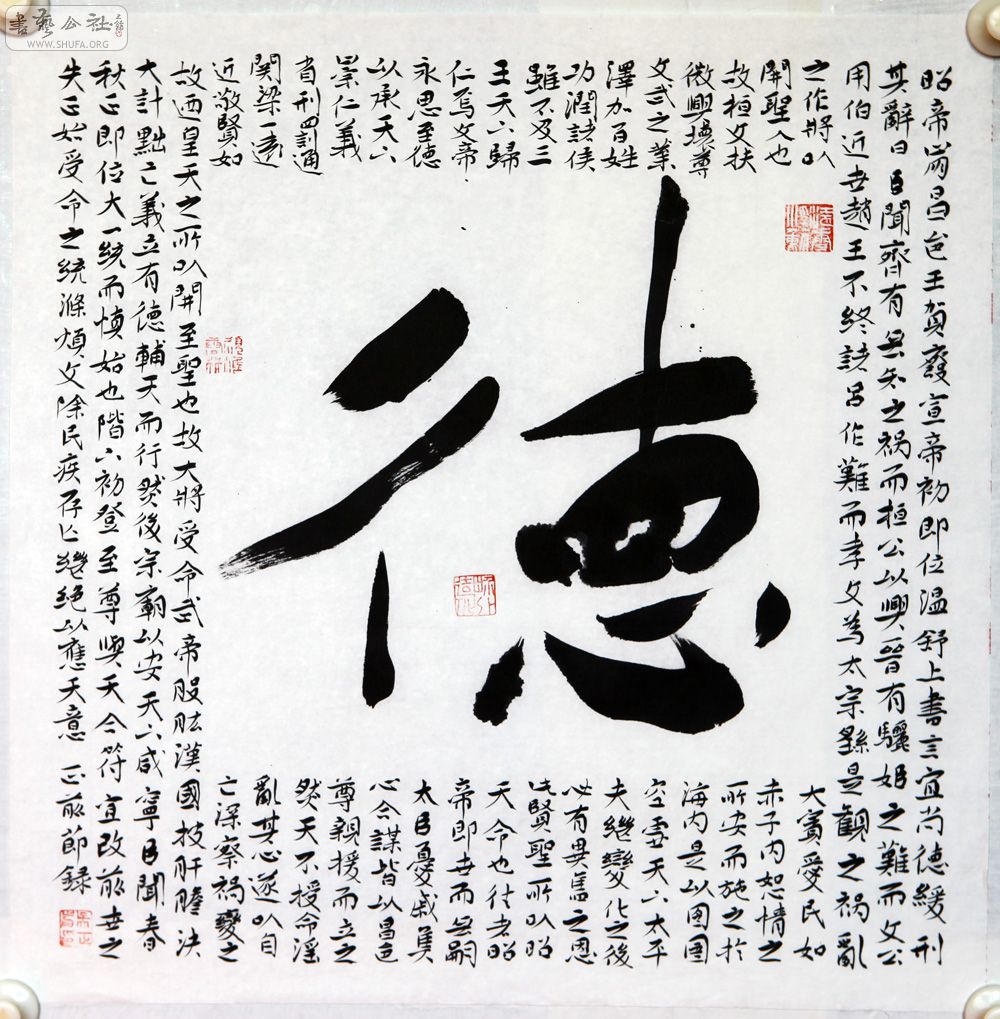 書藝公社
WWW.SHUFA.ORG
德
昭帝崩昌邑王賀廢宣帝初即位溫舒上書言宜尚德緩刑
其辭曰臣聞齊有無知之禍而桓公以興晉有驪姬之難而文公
用伯近世趙王不終諸呂作難而孝文為太宗繇是觀之禍亂
之作將以
開聖人也
故桓文扶
微興壞尊
文武之業
澤加百姓
功潤諸侯
雖不及三
王天下歸
仁焉文帝
永思至德
以承天下
崇仁義
省刑罰通
關梁一遠
近敬賢如
大賓愛民如
赤子內恕情之
所安而施之於
海內是以囹圄
空虛天下太平
夫繼變化之後
必有異舊之恩
此賢聖所以昭
天命也往者昭
帝即世而無嗣
大臣憂戚焦
心合謀皆以昌邑
尊親援而立之
然天不授命淫
亂其心遂以自
亡深察禍變之
故迺皇天之所以開至聖也故大將受命武帝股肱漢國披肝膽決
大計黜亡義立有德輔天而行然後宗廟以安天下咸寧臣聞春
秋正即位大一統而慎始也陛下初登至尊與天合符宜改前世之
失正始受命之統滌煩文除民疾存亡繼絕以應天意 節錄